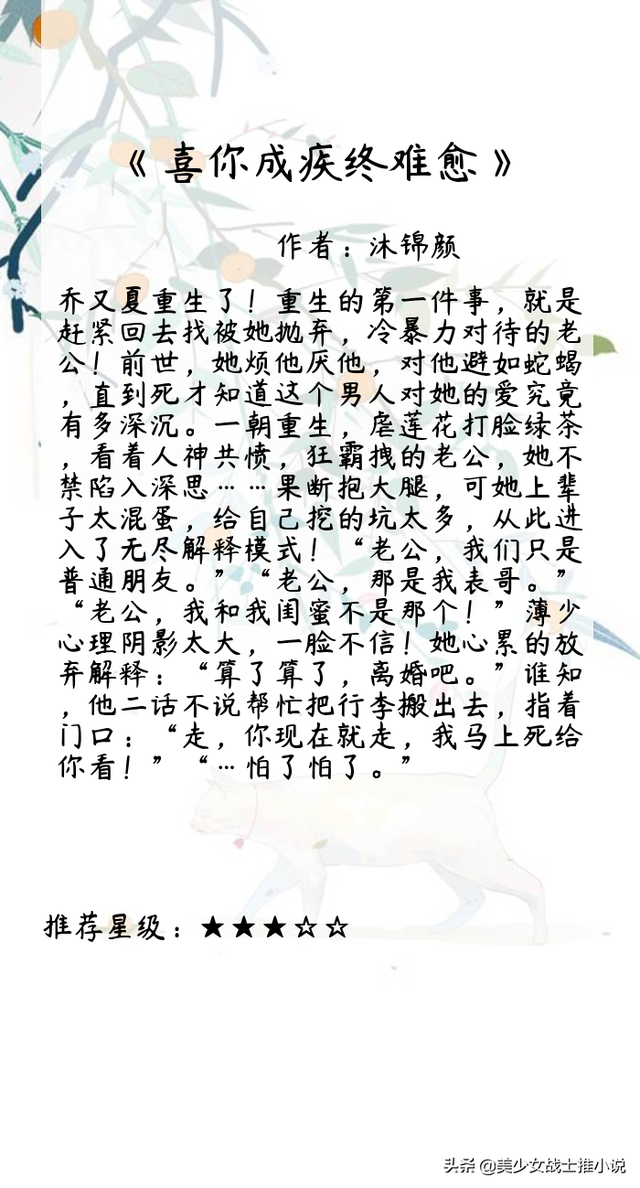 《喜你成疾终难愈》
作者：沐锦颜
乔又夏重生了！重生的第一件事，就是
赶紧回去找被她抛弃，冷暴力对待的老
公！前世，她烦他厌他，对他避如蛇蝎
，直到死才知道这个男人对她的爱究竟
有多深沉。一朝重生，虐莲花打脸绿茶
，看着人神共愤，狂霸拽的老公，她不
禁陷入深思……果断抱大腿，可她上辈
子太混蛋，给自己挖的坑太多，从此进
入了无尽解释模式！“老公，我们只是
普通朋友。”“老公，那是我表哥。”
“老公，我和我闺蜜不是那个！”薄少
心理阴影太大，一脸不信！她心累的放
弃解释：“算了算了，离婚吧。”谁知
，他二话不说帮忙把行李搬出去，指着
门口：“走，你现在就走，我马上死给
你看！”“…怕了怕了。”
推荐星级：★★★☆☆
头条 @美少女战士推小说